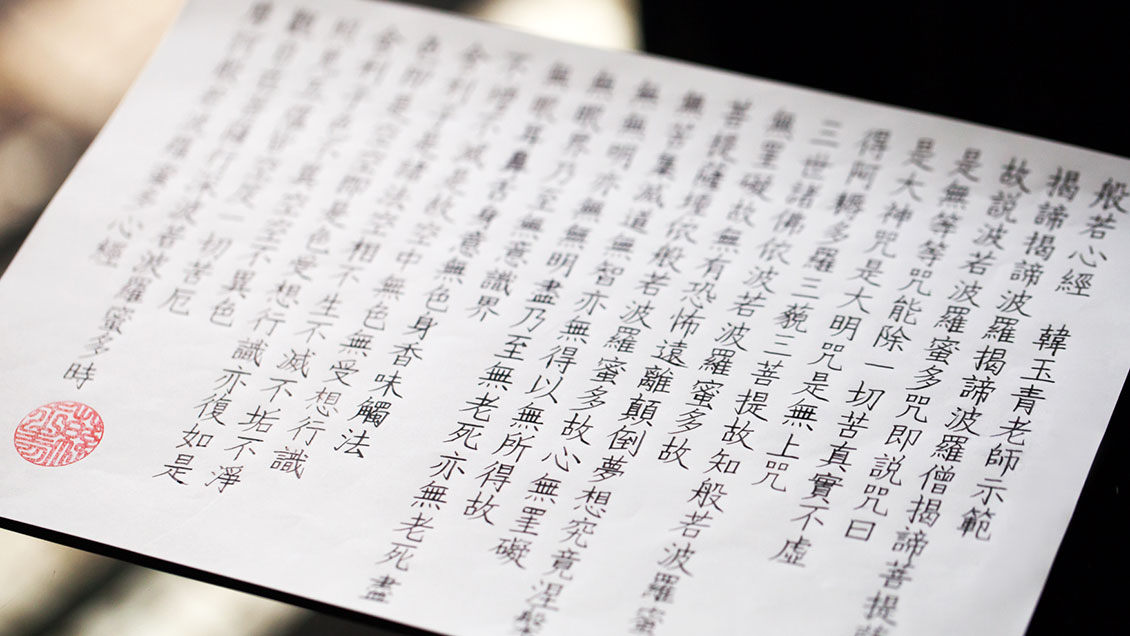 摩訶般若波羅蜜多心經
觀自在菩薩行深波若波羅蜜多時
照見五蘊皆空度一切苦厄
舍利子色不異空空不異色
色即是空空即是色受想行識亦復如是
舍利子是諸法空相不生不滅不垢不淨
不增不減是故空中無色無受想行識
無眼耳鼻舌身意無色身香味觸法
無眼界乃至無意識界
無無明亦無無明盡乃至無老死亦無老死盡
無苦集滅道無智亦無得以無所得故
菩提薩埵依般若波羅蜜多故心無罣礙
無罣礙故無有恐怖遠離顛倒夢想究竟涅槃
三世諸佛依波若波羅蜜多故
得阿耨多羅三藐三菩提故知般若波羅蜜
是大神咒是大明咒是無上咒
是無等等咒能除一切苦真實不虛
故説波若波羅蜜多咒即説咒曰
揭諦揭諦波羅揭諦波羅僧揭諦菩提薩
般若心經 韓玉青老師示範